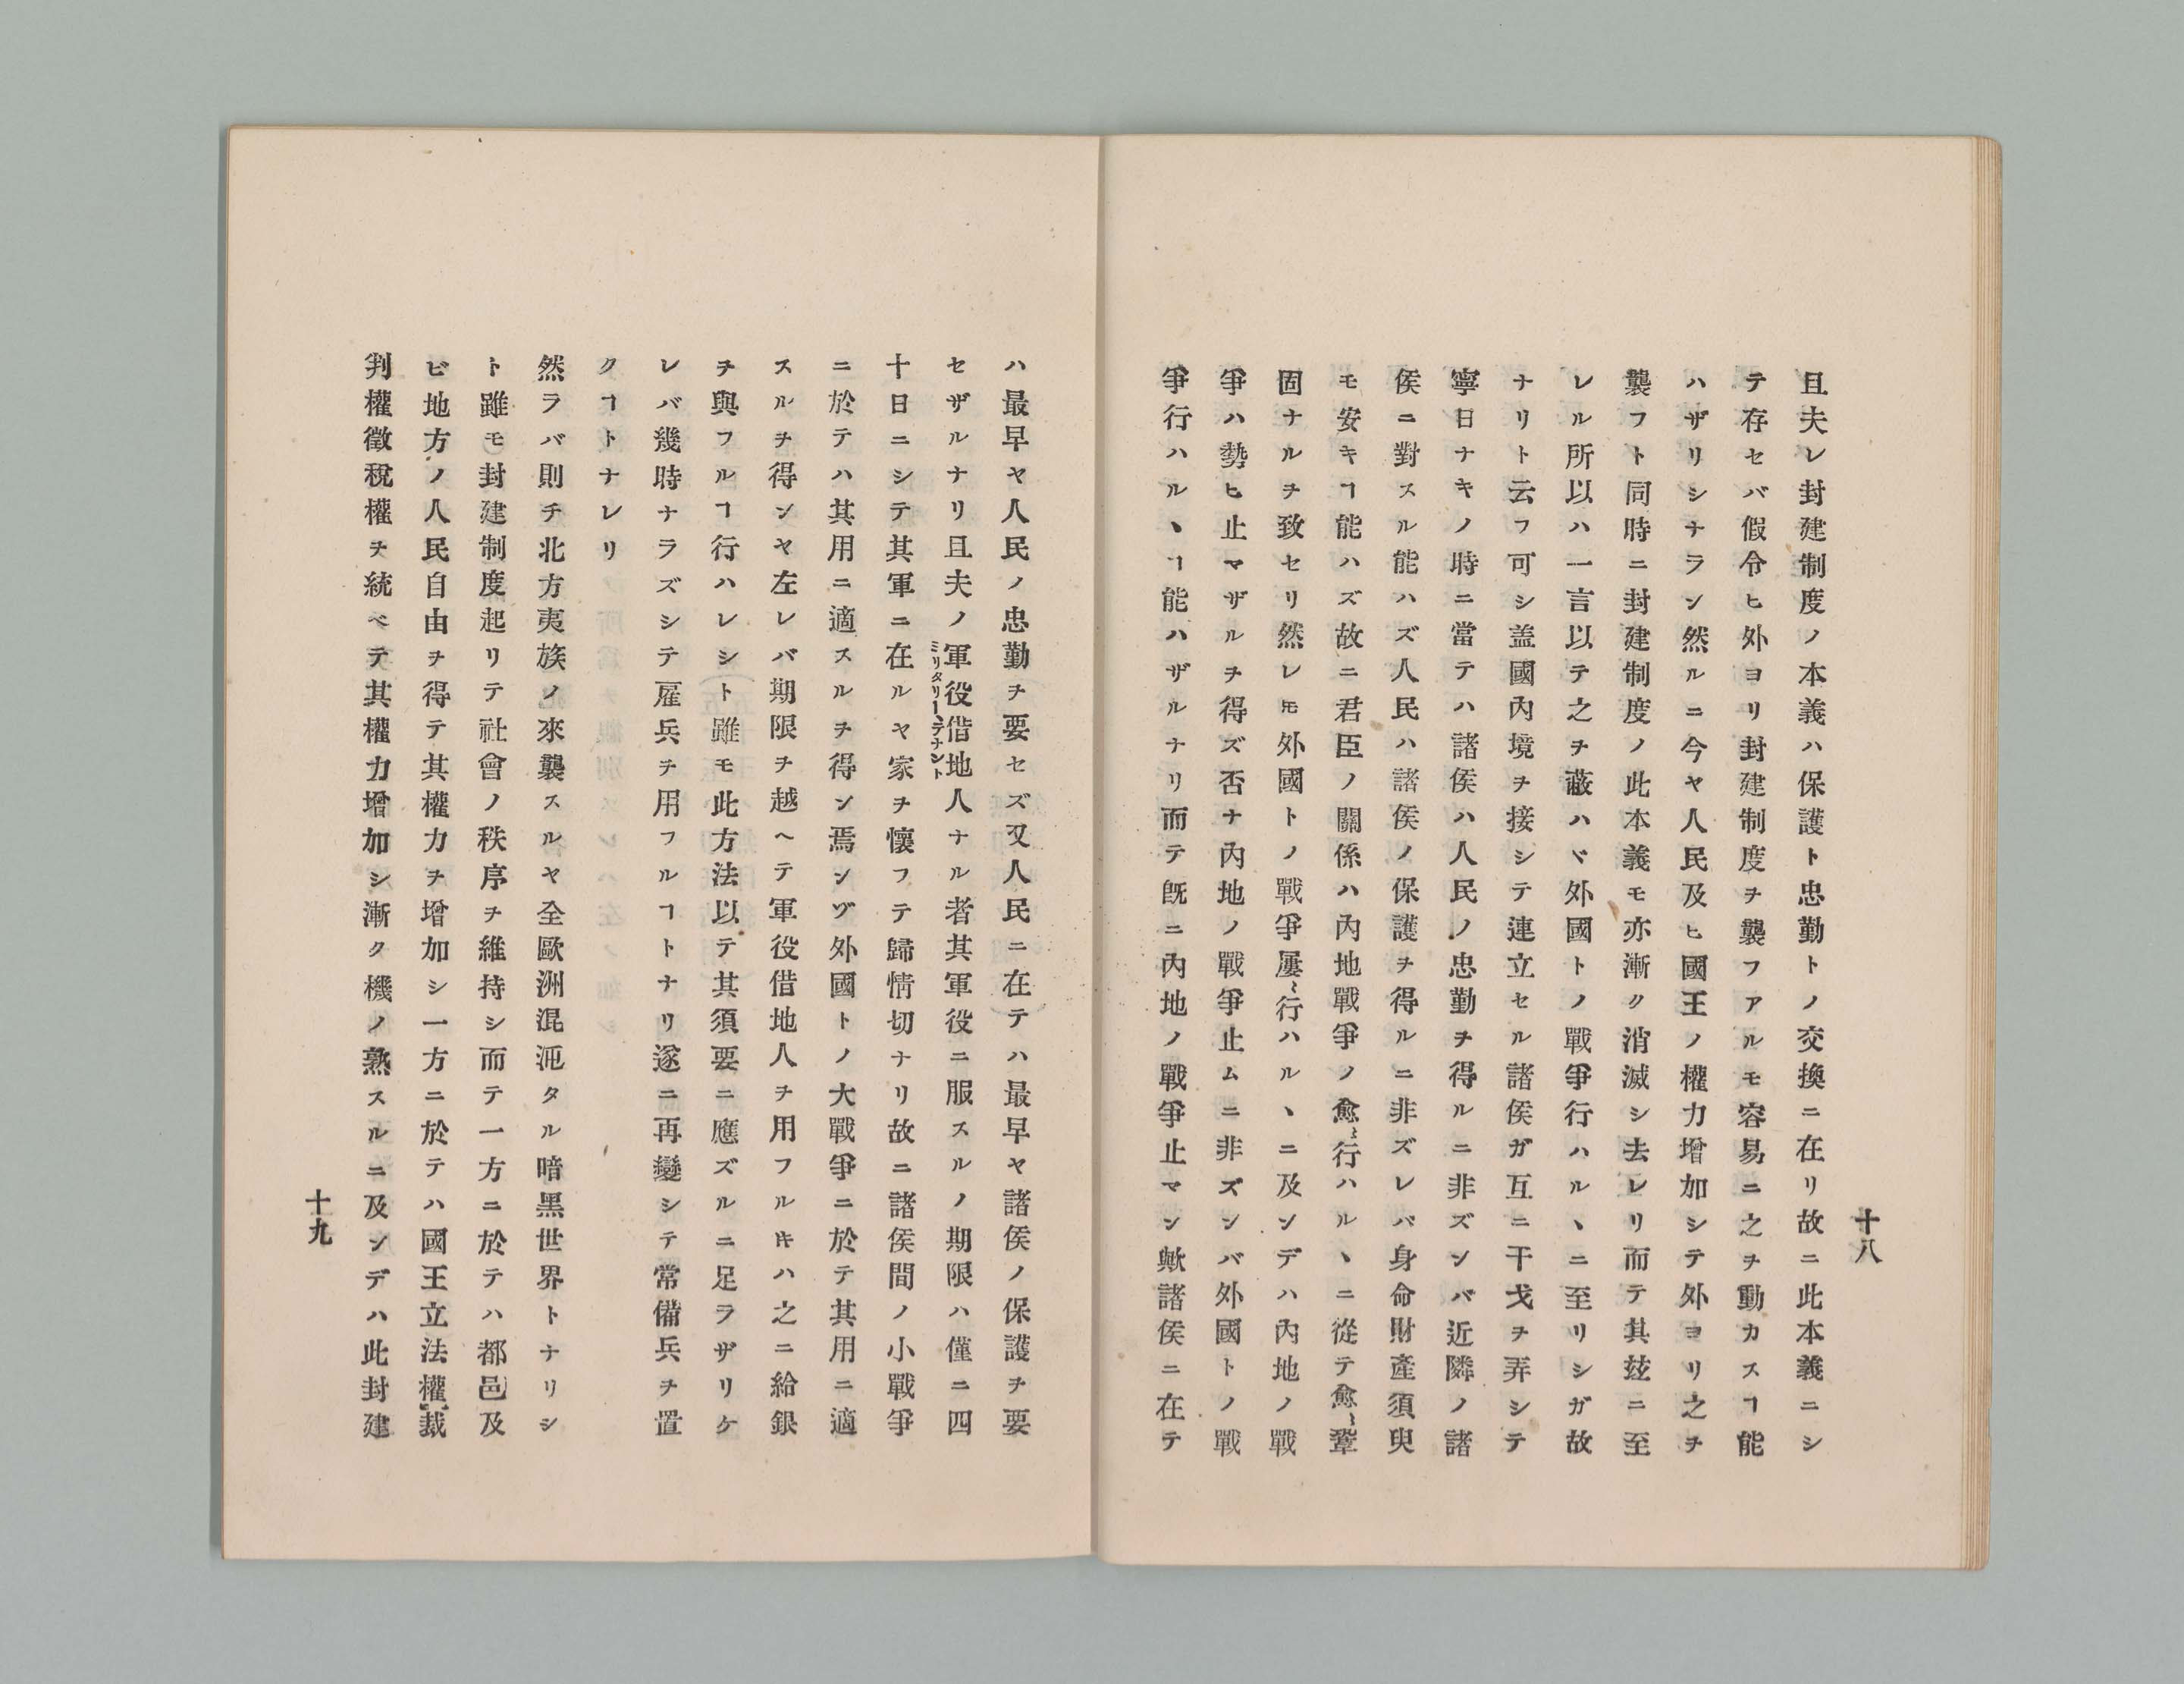 十八
且夫レ封建制度ノ本義ハ保護ト忠勤トノ交換ニ在リ故ニ此本義ニシ
テ存セバ假令ヒ外ヨリ封建制度ヲ襲フアルモ容易ニ之ヲ動カスヿ能
ハザリシナラン然ルニ今ヤ人民及ヒ國王ノ權力增加シテ外ヨリ之ヲ
襲フト同時ニ封建制度ノ此本義モ亦漸ク消滅シ去レリ而テ其玆ニ至
レル所以ハ一言以テ之ヲ蔽ハヾ外國トノ戰爭行ハルヽニ至リシガ故
ナリト云フ可シ盖國內境ヲ接シテ連立セル諸侯ガ互ニ干戈ヲ弄シテ
寧日ナキノ時ニ當テハ諸侯ハ人民ノ忠勤ヲ得ルニ非ズンバ近隣ノ諸
侯ニ對スル能ハズ人民ハ諸侯ノ保護ヲ得ルニ非ズレバ身命財產須臾
モ安キヿ能ハズ故ニ君臣ノ關係ハ內地戰爭ノ愈〻行ハルヽニ從テ愈〻鞏
固ナルヲ致セリ然レ𪜈外國トノ戰爭屢〻行ハルヽニ及ンデハ內地ノ戰
爭ハ勢ヒ止マザルヲ得ズ否ナ內地ノ戰爭止ムニ非ズンバ外國トノ戰
爭行ハルヽヿ能ハザルナリ而テ旣ニ內地ノ戰爭止マン歟諸侯ニ在テ
ハ最早ヤ人民ノ忠勤ヲ要セズ又人民ニ在テハ最早ヤ諸侯ノ保護ヲ要
セザルナリ且夫ノ軍役借地人ナル者其軍役ニ服スルノ期限ハ僅ニ四
ミリタリーテナント
十日ニシテ其軍ニ在ルヤ家ヲ懷フテ歸情切ナリ故ニ諸侯間ノ小戰爭
ニ於テハ其用ニ適スルヲ得ン焉ンヅ外國トノ大戰爭ニ於テ其用ニ適
スルヲ得ンヤ左レバ期限ヲ越ヘテ軍役借地人ヲ用フルキハ之ニ給銀
ヲ與フルヿ行ハレシト雖モ此方法以テ其須要ニ應ズルニ足ラザリケ
レバ幾時ナラズシテ雇兵ヲ用フルヿトナリ遂ニ再變シテ常備兵ヲ置
クヿトナレリ
然ラバ則チ北方夷族ノ來襲スルヤ全歐洲混沌タル暗黑世界トナリシ
ト雖モ封建制度起リテ社會ノ秩序ヲ維持シ而テ一方ニ於テハ都邑及
ビ地方ノ人民自由ヲ得テ其權力ヲ增加シ一方ニ於テハ國王立法權裁
判權徵稅權ヲ統ベテ其權力增加シ漸ク機ノ熟スルニ及ンデハ此封建
十九